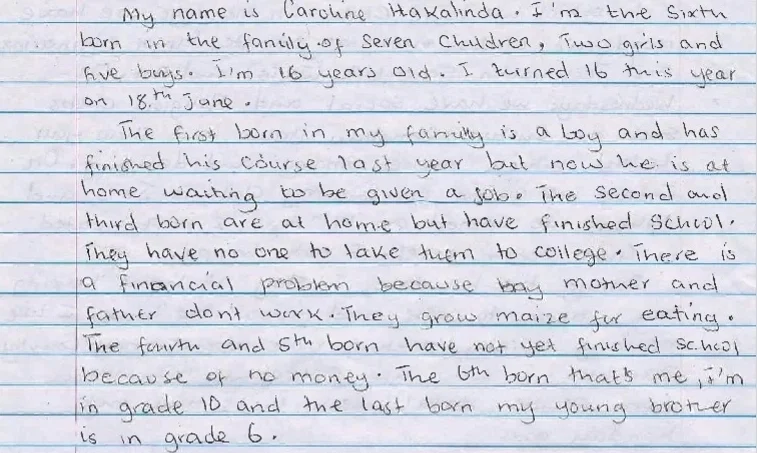 My name is Caroline Hakalinda. I'm the Sixth
born in the family of Seven Children, Two girls and
five boys. I'm 16 years old. I turned 16 this year
on 18.th June.
The first born in my family is a boy and has
finished his Course last year but now he is at
home waiting to be given a job. The Second and
third born are at home but have finished School.
They have no one to take them to college. There is
a financial problem because my mother and
father don't work. They grow maize for eating.
The fourth and 5th born have not yet finished school
because of no money. The 6th born that's me, i'm
in grade 10 and the last born my young brother
is in grade 6.